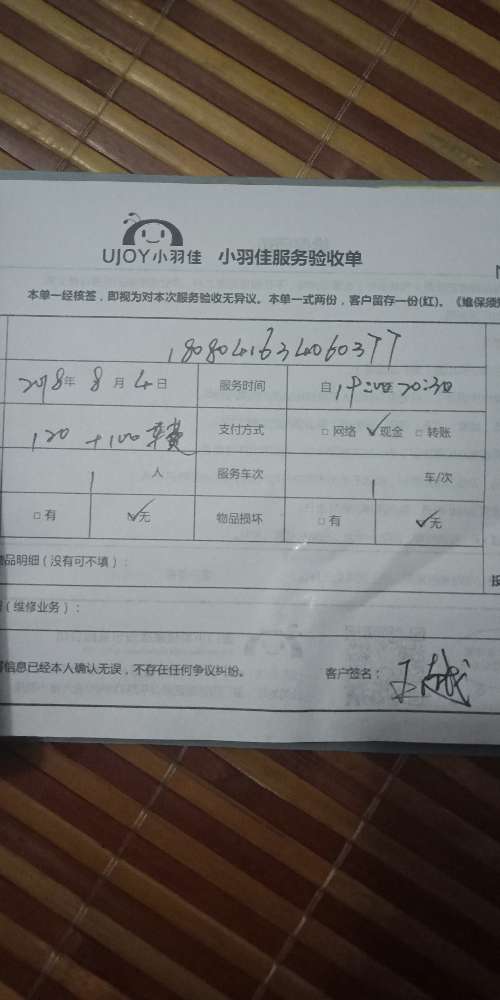 UJOY小羽佳 小羽佳服务验收单
本单一经核签，即视为对本次服务验收无异议。本单一式两份，客户留存一份(红)。《维保须
180804163406037T
2018年 8月4日 服务时间 自 19:00 20:30
120 +100车费 支付方式 □网络 ✓现金 □转账
1人 服务车次 1 车/次
□有 ✓无 物品损坏 □有 ✓无
品明细（没有可不填）：
（维修业务）：
信息已经本人确认无误，不存在任何争议纠纷。 客户签名：王越